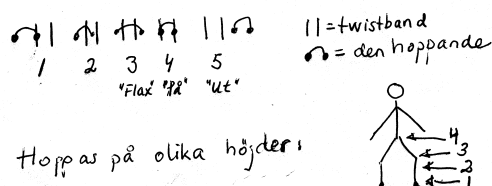 || = twistband
= den hoppande
1 2 3 4 5
"Flax" "På" "Ut"
Hoppas på olika höjder:
4
3
2
1